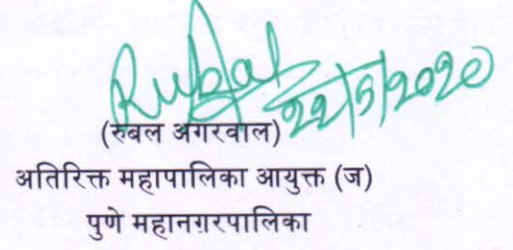 Rubal 22/5/2020
(रुबल अगरवाल)
अतिरिक्त महापालिका आयुक्त (ज)
पुणे महानगरपालिका